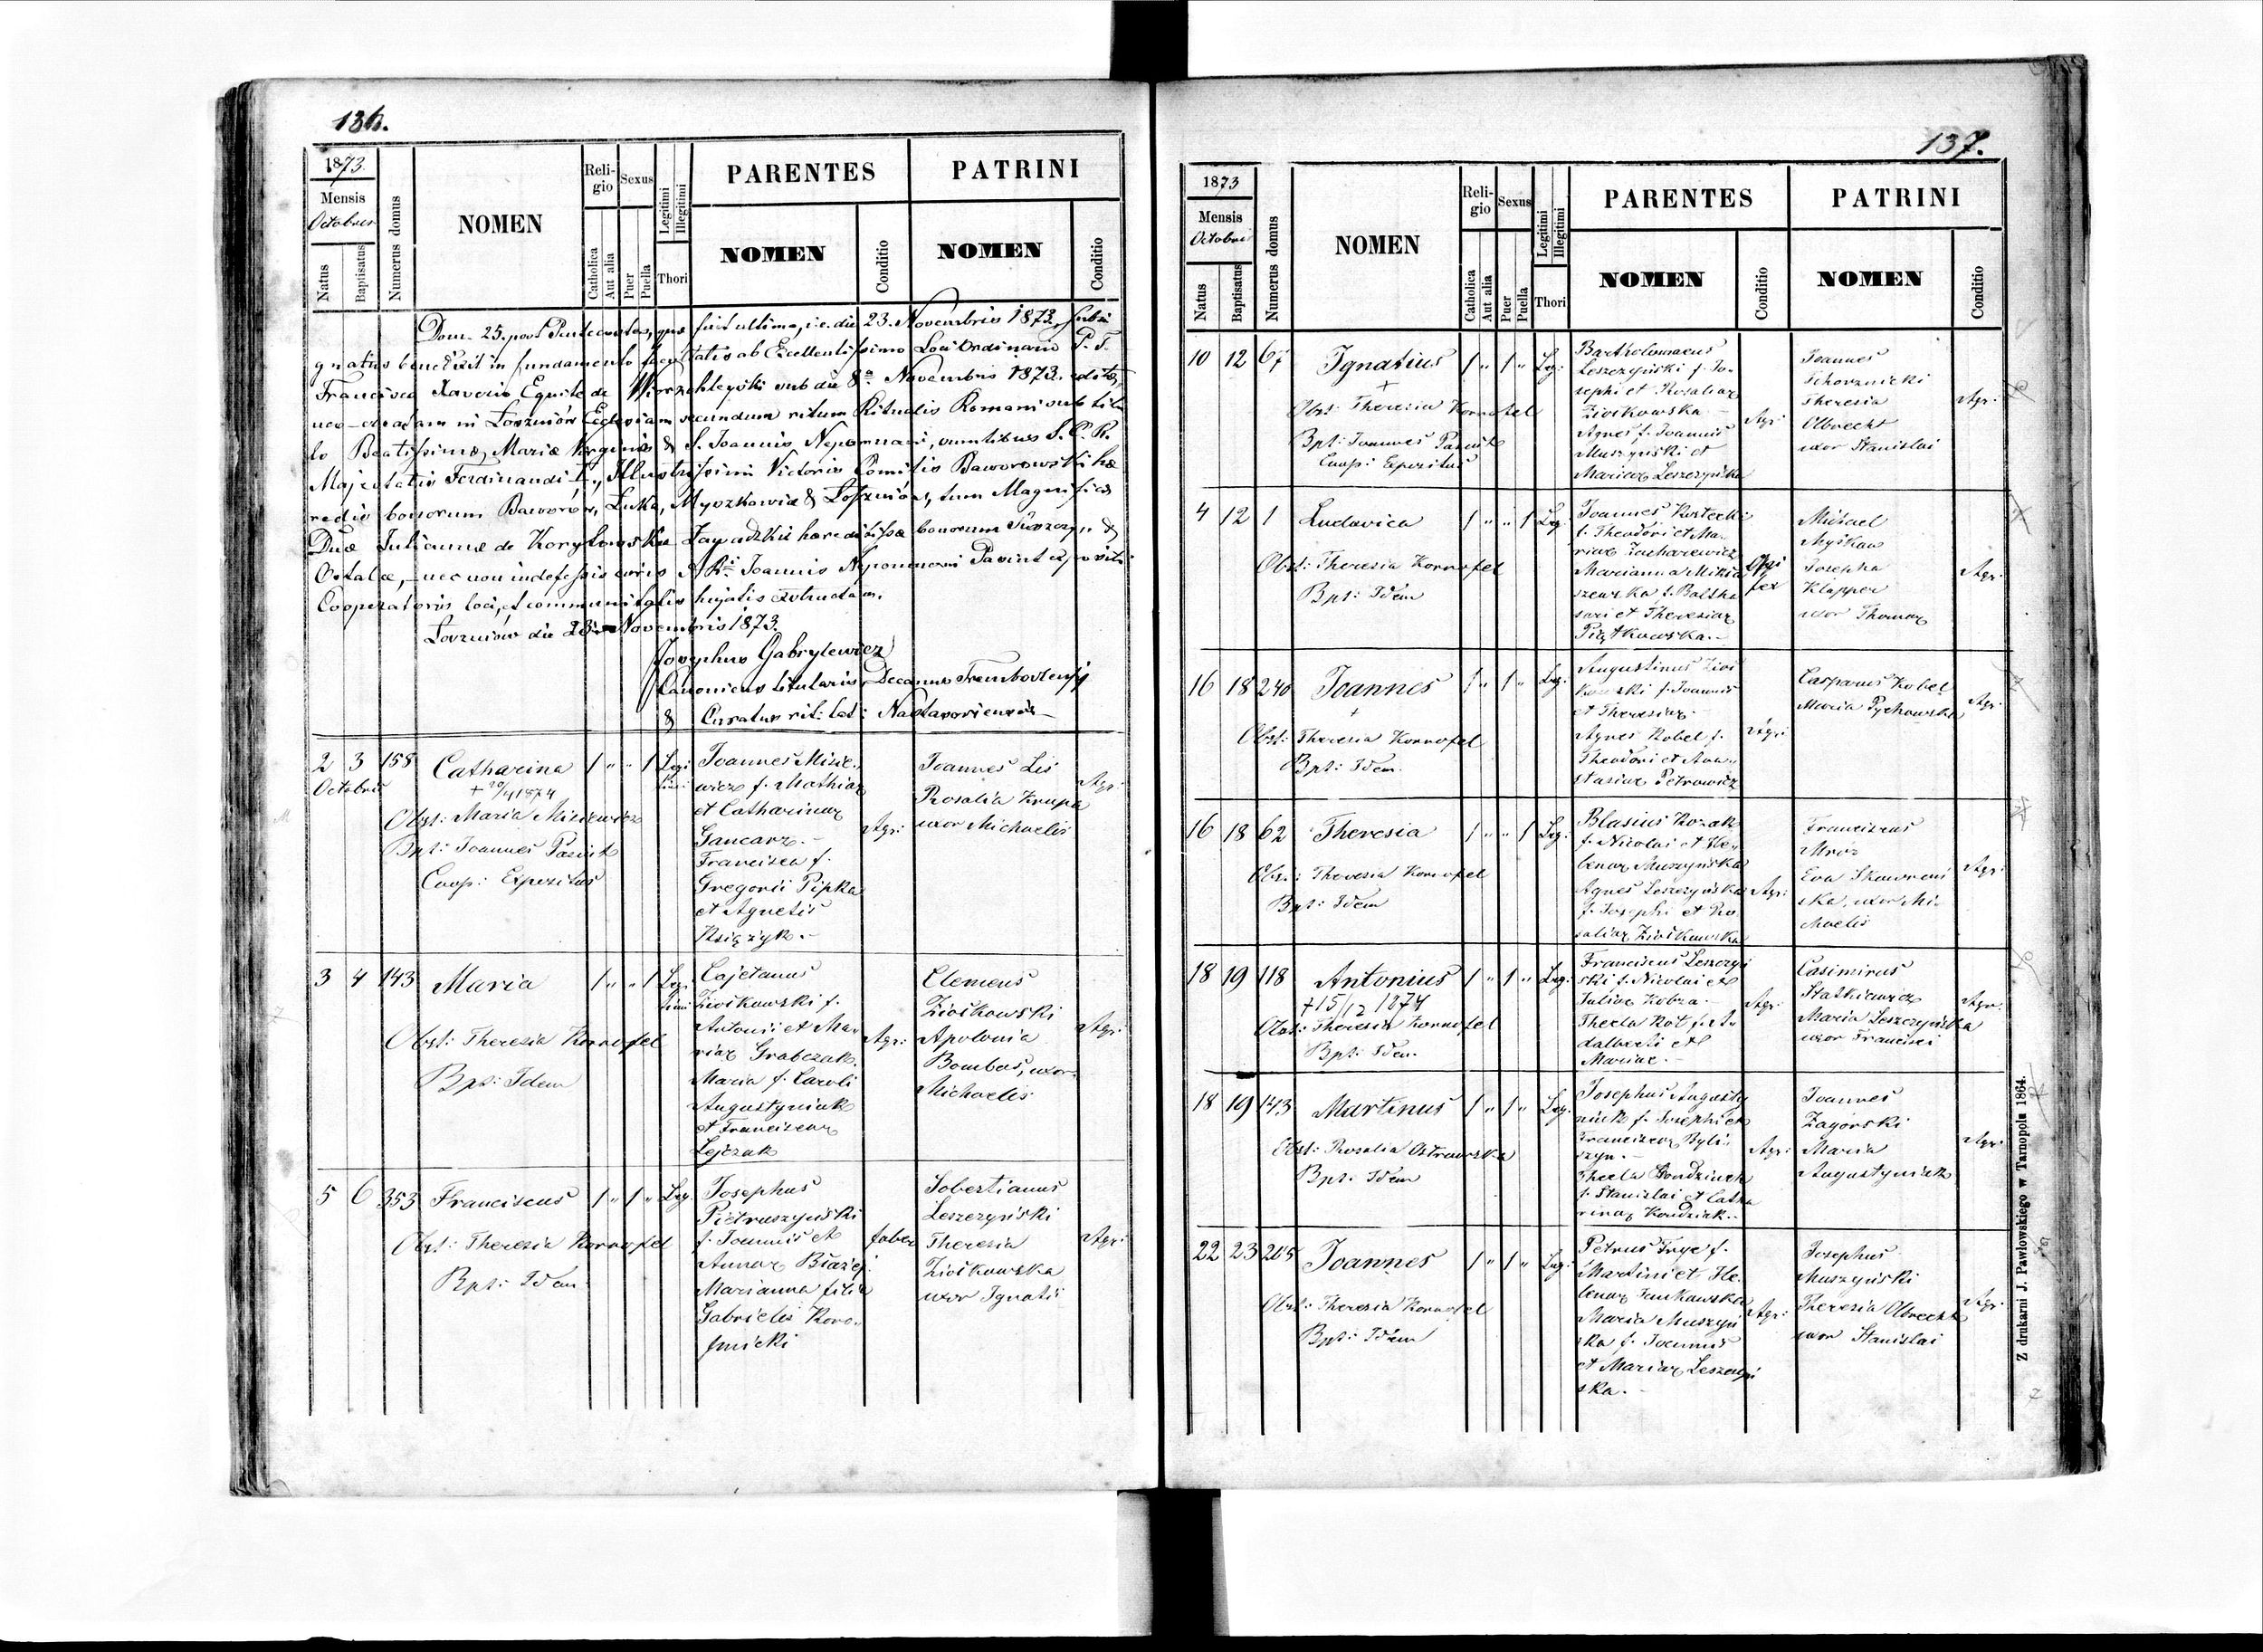 136.
1873.
Mensis
Octobris
Natus
Baptisatus
Numerus domus
NOMEN
Reli-
gio
Catholica
Aut alia
Sexus
Puer
Puella
Legitimi
Illegitimi
Thori
PARENTES
NOMEN
Conditio
PATRINI
NOMEN
Conditio
Dom. 25. post Pentecostes, quæ fuit ultima, i.e. die 23. Novembris 1873, subsi
gnatus benedixit in fundamento facultatis ab Excellentissimo Loci Ordinario P. T.
Francisco Xaverio Equite de Wierzchleyski sub die 8a Novembris 1873. edita,
neo-erectam in Łoszniów Ecclesiam secundum ritum Ritualis Romani sub titu
lo Beatissimæ Mariæ Virginis & S. Joannis Nepomuceni, sumtibus S. C. R.
Majestatis Ferdinandi I., Illustrissimi Victoris Comitis Baworowski hæ
redis bonorum Baworów, Łuka, Myszkowice & Łoszniów, tum Magnificæ
Dnæ Juliannæ de Korytowskie Zawadzki hæreditissæ bonorum &
nec non indefessis curis Joannis Nepomuceni Paszint expositi
Cooperatoris loci, et communitatis hujatis exstructam.
Łoszniów die 23 Novembris 1873.
Josephus Gabrylewicz
Canonicus titularis, Decanus Trembovlensis
& Curatus rit: lat: Nastasoviensis
2 3 158 Catharina 1 " " 1 Legi
Octobris
+ 20/4 1874
Obst: Maria Misiewicz
Bpt: Joannes Paszint
Coop: Expositus
Joannes Misie-
wicz f. Mathiæ
et Catharinæ
Gancarz.-
Francisca f.
Gregorii Pipka
et Agnetis
Księżyk.-
Agr:
Joannes Lis
Rosalia Krupa
uxor Michaelis
Agr:
3 4 143 Maria 1 " " 1 Leg.
Obst: Theresia Kornofel
Bpt: Idem
Cajetanus
Ziółkowski f.
Antonii et Ma-
riæ Grabczak.
Maria f. Caroli
Augustyniak
et Franciscæ
Lejczak
Agr:
Clemens
Ziółkowski
Apolonia
Bombas, uxor
Michaelis
Agr:
5 6 353 Franciscus 1 " 1 " Leg.
Obst: Theresia Kornofel
Bpt: Idem
Josephus
Pietruszyński
f. Joannis et
Annæ Błażej.
Marianna filia
Gabrielis Koro-
fnicki
faber
Sobestianus
Leszczyński
Theresia
Ziółkowska
uxor Ignatii
Agr:
137.
1873
Mensis
Octobris
Natus
Baptisatus
Numerus domus
NOMEN
Reli-
gio
Catholica
Aut alia
Sexus
Puer
Puella
Legitimi
Illegitimi
Thori
PARENTES
NOMEN
Conditio
PATRINI
NOMEN
Conditio
10 12 67 Ignatius 1 " 1 " Leg:
+
Obst: Theresia Kornofel
Bpt: Joannes Paszint
Coop: Expositus
Bartholomaeus
Leszczyński f. Jo-
sephi et Rosaliæ
Ziółkowska.-
Agnes f. Joannis
Muszyński et
Mariæ Leszczyńska
Agr:
Joannes
Tchorznicki
Theresia
Olbrecht
uxor Stanislai
Agr:
4 12 1 Ludovica 1 " " 1 Leg:
Obst: Theresia Kornofel
Bpt: Idem
Joannes Kostecki
f. Theodori et Ma-
riæ Zacharewicz
Marianna Mikła
szewska f. Baltha
sari et Theresiæ
Piątkowska.-
Opi
fex
Michael
Myśkow
Josepha
Klapper
uxor Thomæ
Agr:
16 18 240 Joannes 1 " 1 " Leg.
+
Obst: Theresia Kornofel
Bpt: Idem.
Augustinus Ziół
kowski f. Joannis
et Theresiæ.
Agnes Kobel f.
Theodori et Ana-
stasiæ Petrowicz
Agr:
Casparus Kobel
Maria Pychowska
Agr:
16 18 62 Theresia 1 " " 1 Leg.
Obst: Theresia Kornofel
Bpt: Idem
Blasius Kozak
f. Nicolai et He-
lenæ Muszyńska
Agnes Leszczyńska
f. Josephi et Ro
saliæ Ziółkowska
Agr:
Franciscus
Mróz
Eva Skowroń
ska, uxor Mi-
chaelis
Agr:
18 19 118 Antonius 1 " 1 " Leg:
+15/12 1874
Obst: Theresia Kornofel
Bpt: Idem.
Franciscus Leszczyń
ski f. Nicolai et
Juliæ Kobza.
Thecla Kot f. A-
dalberti et
Mariæ.-
Agr:
Casimirus
Statkiewicz
Maria Leszczyńska
uxor Francisci
Agr:
18 19 143 Martinus 1 " 1 " Leg.
Obst: Rosalia Ostrowska
Bpt: Idem
Josephus Augusty
niak f. Josephi et
Franciscæ Byli-
czyn.-
Thecla
f. Stanislai et Catha
rinæ Kondziak.-
Agr:
Joannes
Zagórski
Maria
Augustyniak
Agr:
22 23 205 Joannes 1 " 1 " Leg:
Obst: Theresia Kornofel
Bpt: Idem
Petrus Fryc f.
Martini et He-
lenæ Jankowska
Maria Muszyń
ska f. Joannis
et Mariæ Leszczyń
ska.-
Agr:
Josephus
Muszyński
Theresia Olbrecht
uxor Stanislai
Agr:
Z drukarni J. Pawłowskiego w Tarnopolu 1864.